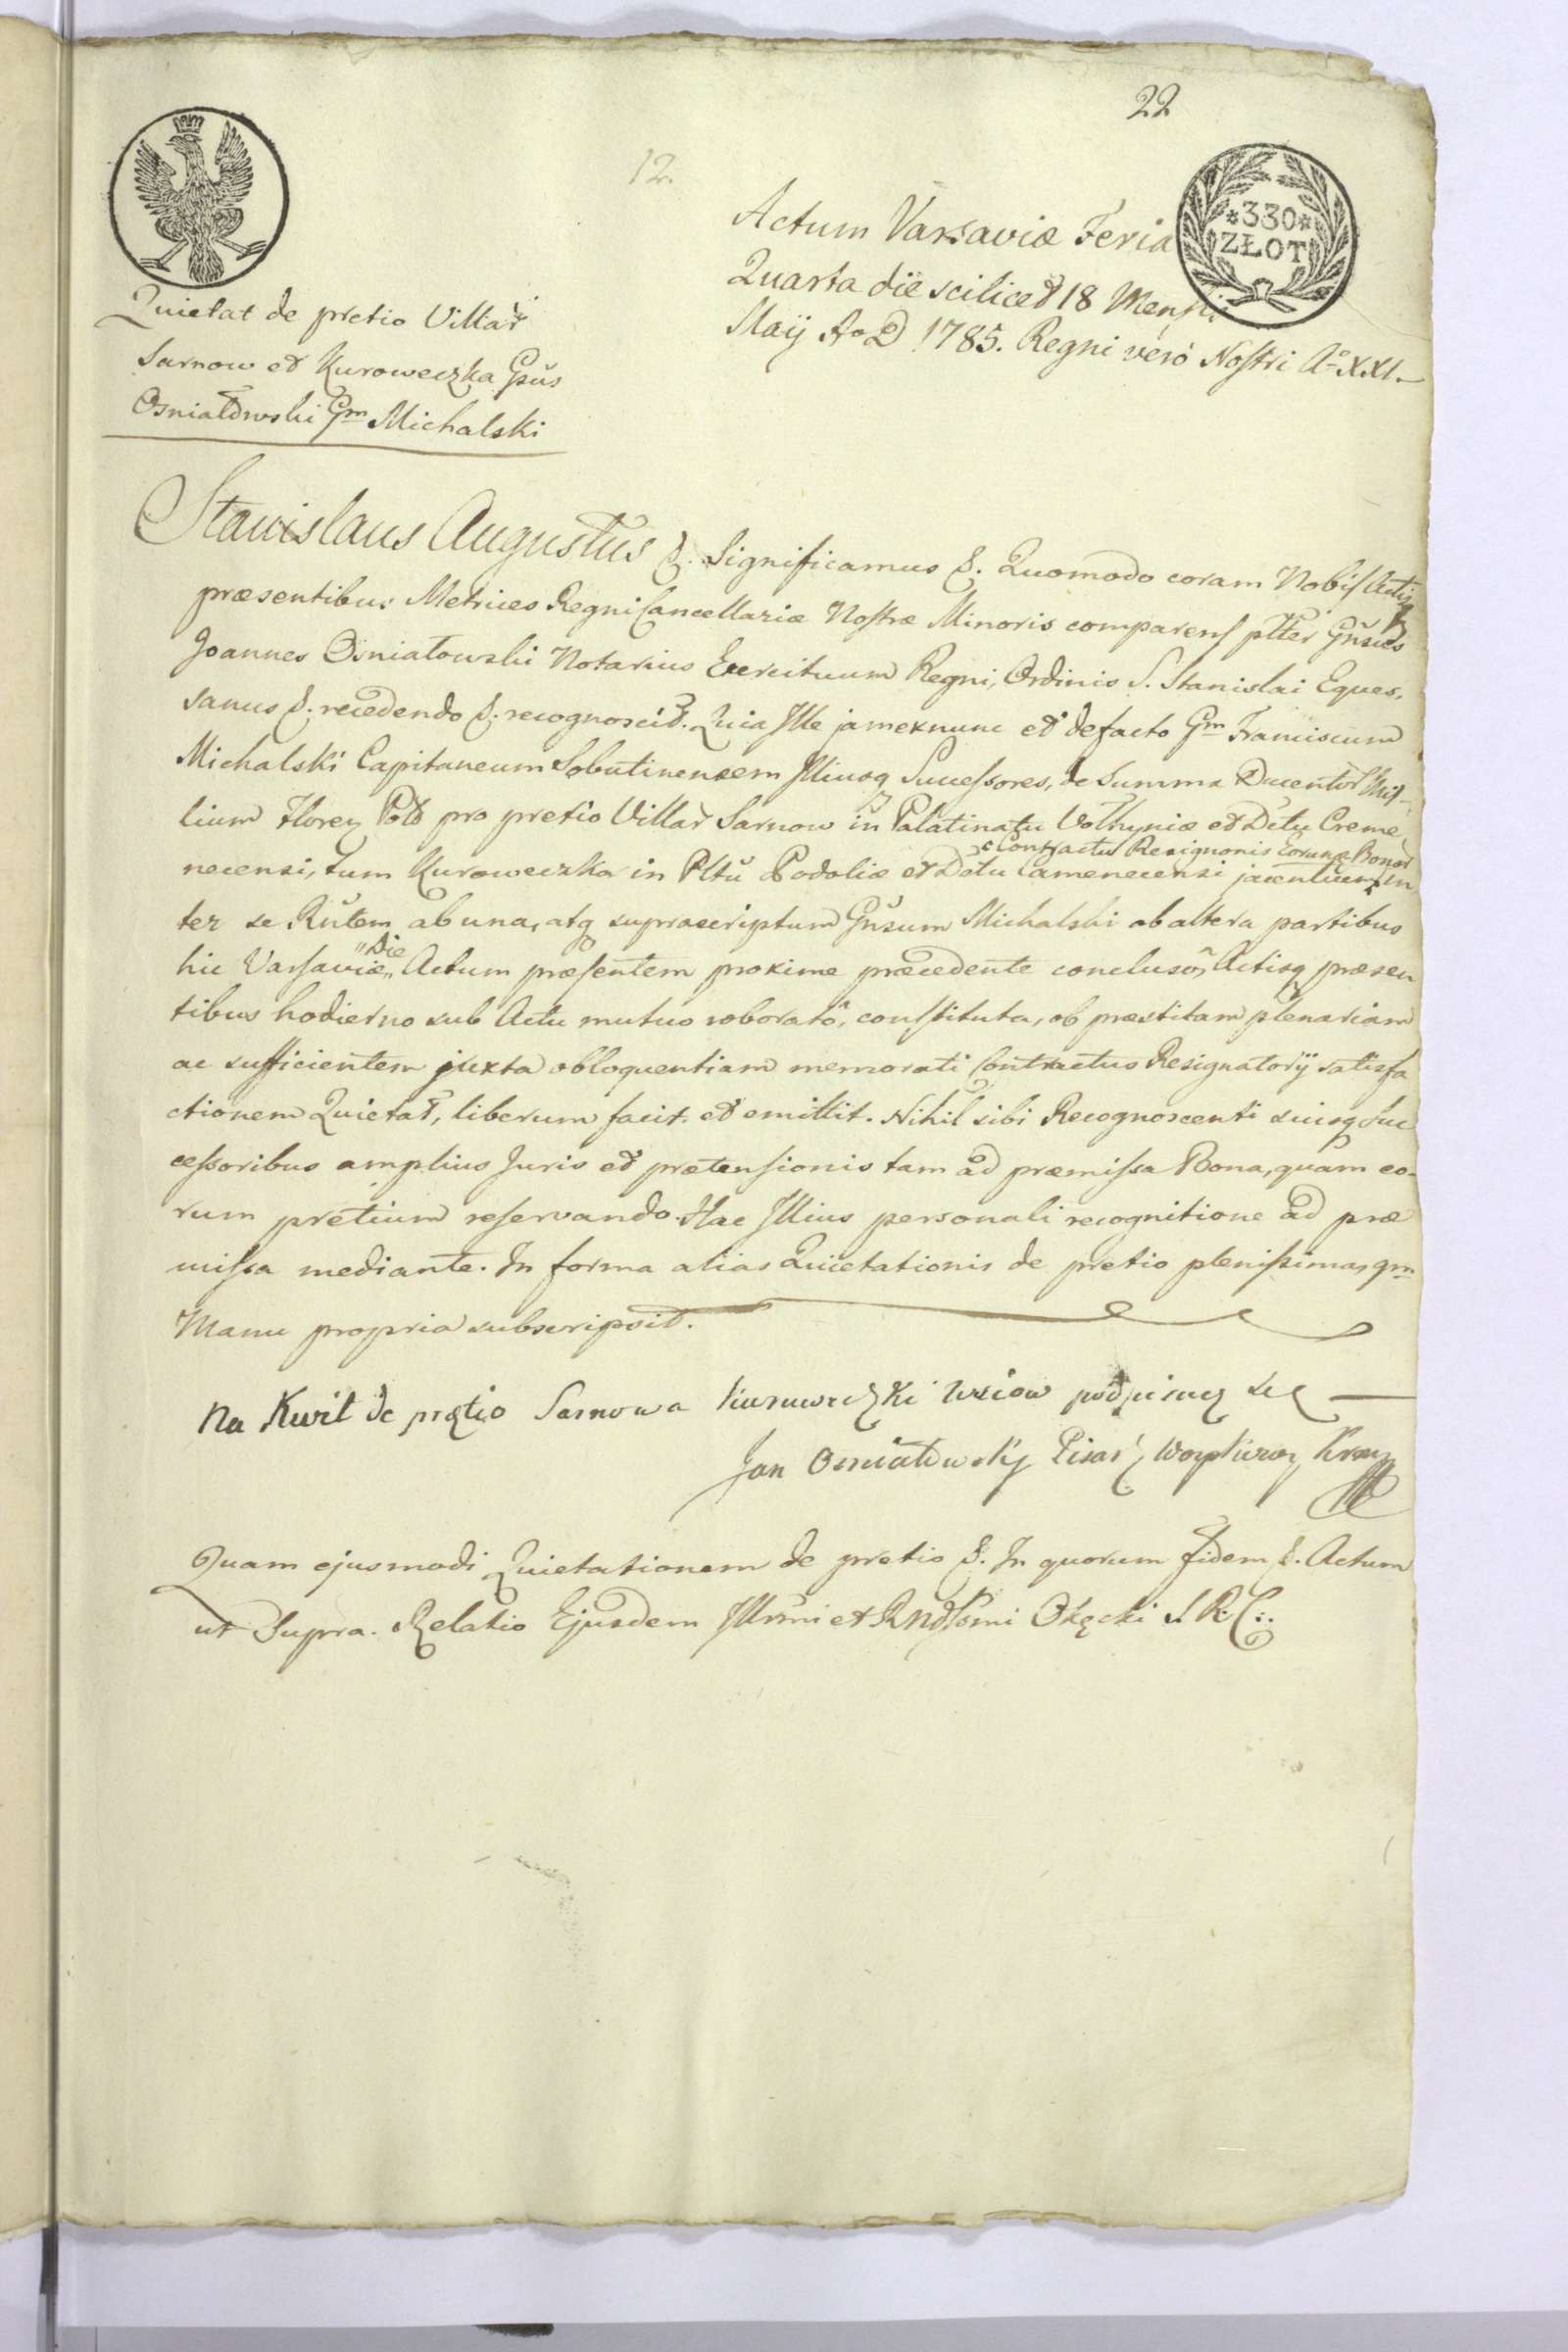 22
12.
*330*
ZŁOT
Actum Varsaviæ Feria
Quarta die scilicet 18 Mensis
Maij Ao D 1785. Regni verò Nostri Ao XXI.
Quietat de pretio Villar
Sarnow et Kuroweczka Gsus
Osniałowski Gm Michalski
Stanislaus Augustus &. Significamus &. Quomodo coram Nobis Actisq
præsentibus Metrices Regni Cancellariæ Nostræ Minoris comparens pltter Gnsus
Joannes Osniałowski Notarius Exercituum Regni, Ordinis S. Stanislai Eques,
sanus &. recedendo &. recognoscit. Quia Ille jam exnunc et defacto Gm Franciscum
Michalski Capitaneum Sobutinensem Illiusq Successores, de Summa Ducentor Mil-
lium Floren Pold pro pretio Villar Sarnow in Palatinatu Volhyniæ et Dstu Creme
necensi, tum Kuroweczka in Pltu Podoliæ et Dstu Camenecensi jacentium
Contractu Resignonis Eorunq Bonor in
ter se Rntem ab una, atq suprascriptum Gnsum Michalski ab altera partibus
hic Varsaviæ „Die„ Actum præsentem proxime præcedente concluso, Actisq præsen
tibus hodierno sub Actu mutuo roborato, constituta, ob præstitam plenariam
ac sufficientem juxta obloquentiam memorati Contractus Resignatorij satisfa
ctionem Quietat, liberum facit et emittit. Nihil sibi Recognoscenti suisq Suc
cessoribus amplius Juris et prætensionis tam ad præmissa Bona, quam eo-
rum pretium reservando. Hac Illius personali recognitione ad præ
missa mediante. In forma alias Quietationis de pretio plenissima, qm
Manu propria subscripsit.
Na Kwit de prętio Sarnowa Kuroweczki wsiow podpisuę się
Jan Osniałowsky Pisarz Woysk Kor
Quam ejusmodi Quietationem de pretio &. In quorum fidem &. Actum
ut Supra. Relatio Ejusdem Illrmi et Rndssmi Okęcki S. R. C.